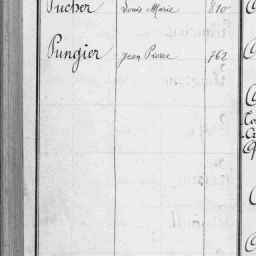 Pucher Louis Marie 810
Pungier Jean Pierre 762